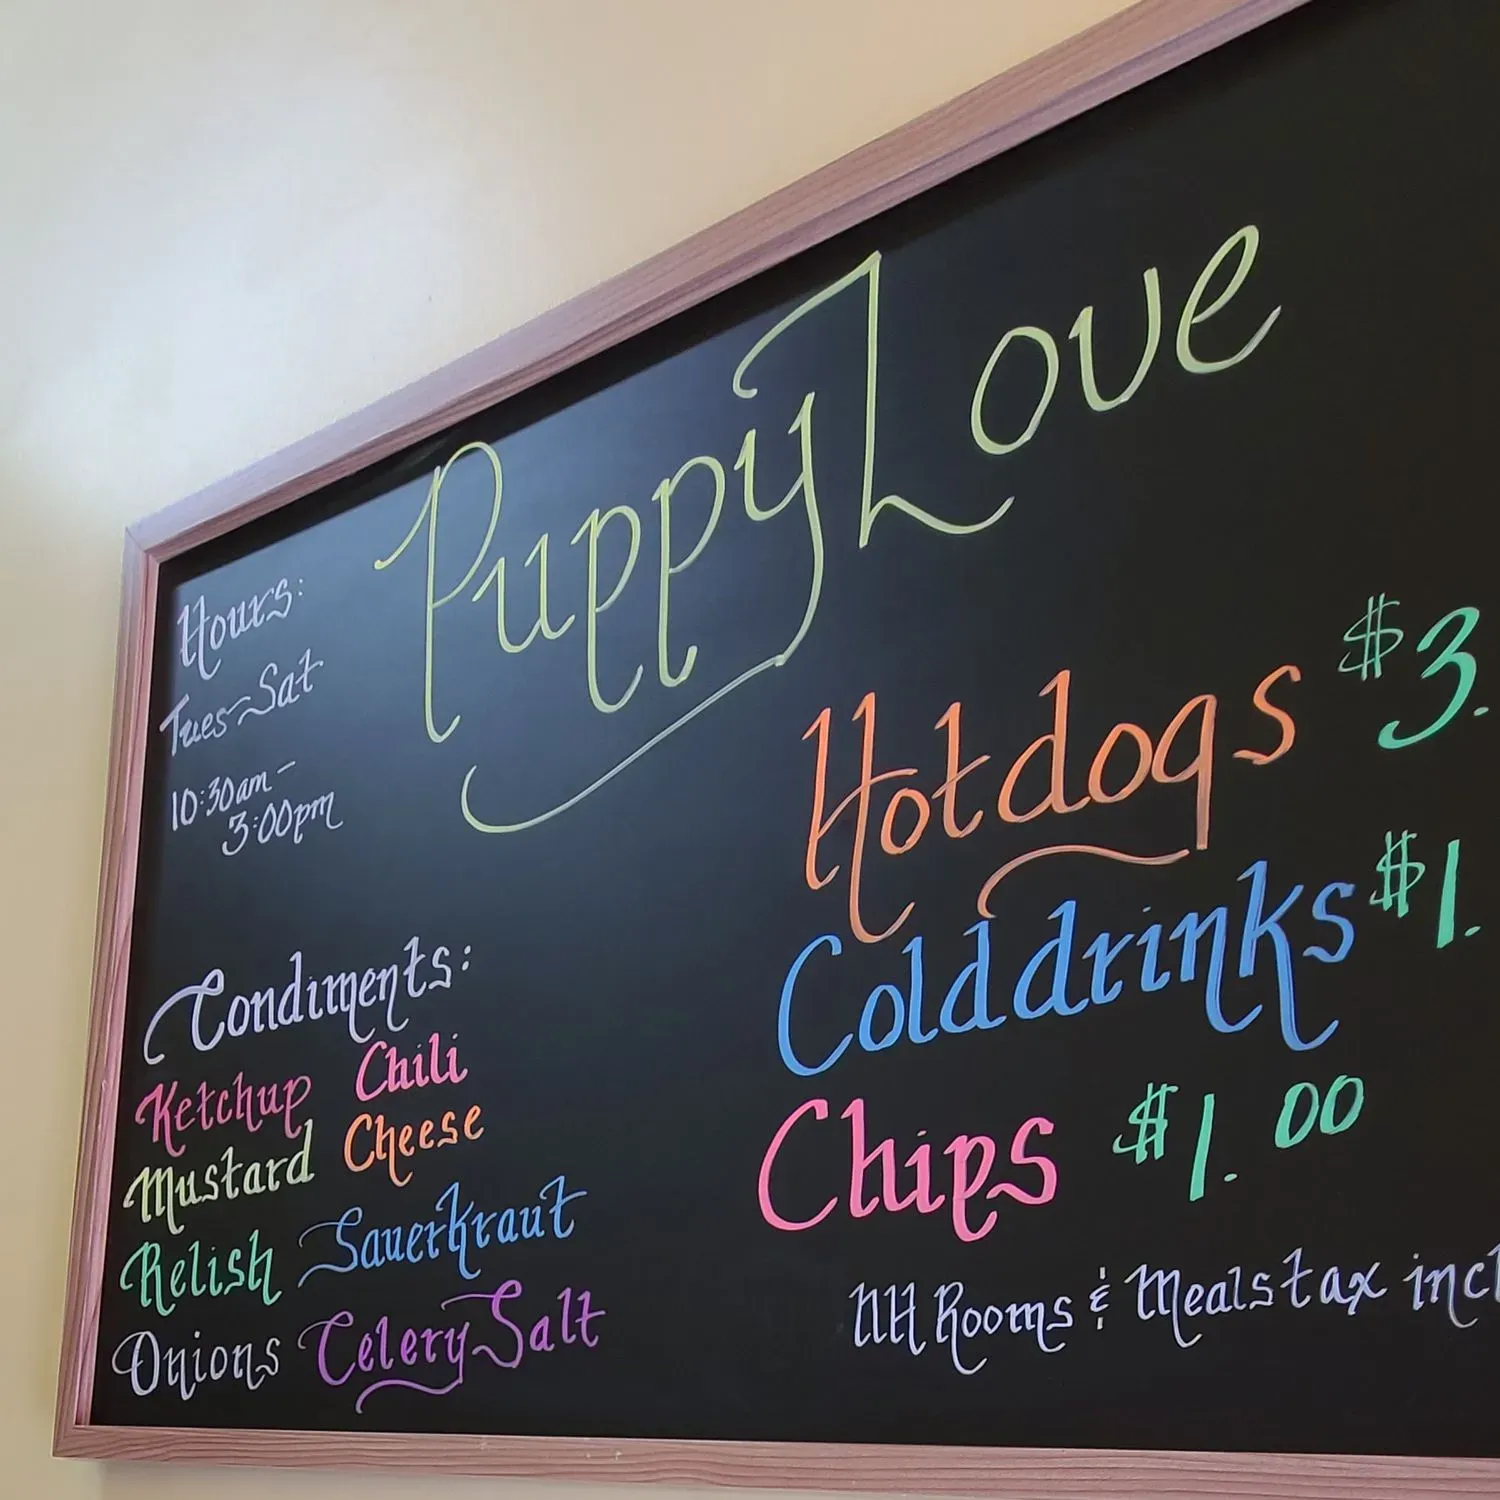 Puppy Love
Hours:
Tues-Sat
10:30am-
3:00pm
Hotdogs $3.
Cold drinks $1.
Chips $1.00
NH Rooms & Meals tax incl
Condiments:
Ketchup Chili
Mustard Cheese
Relish Sauerkraut
Onions Celery Salt